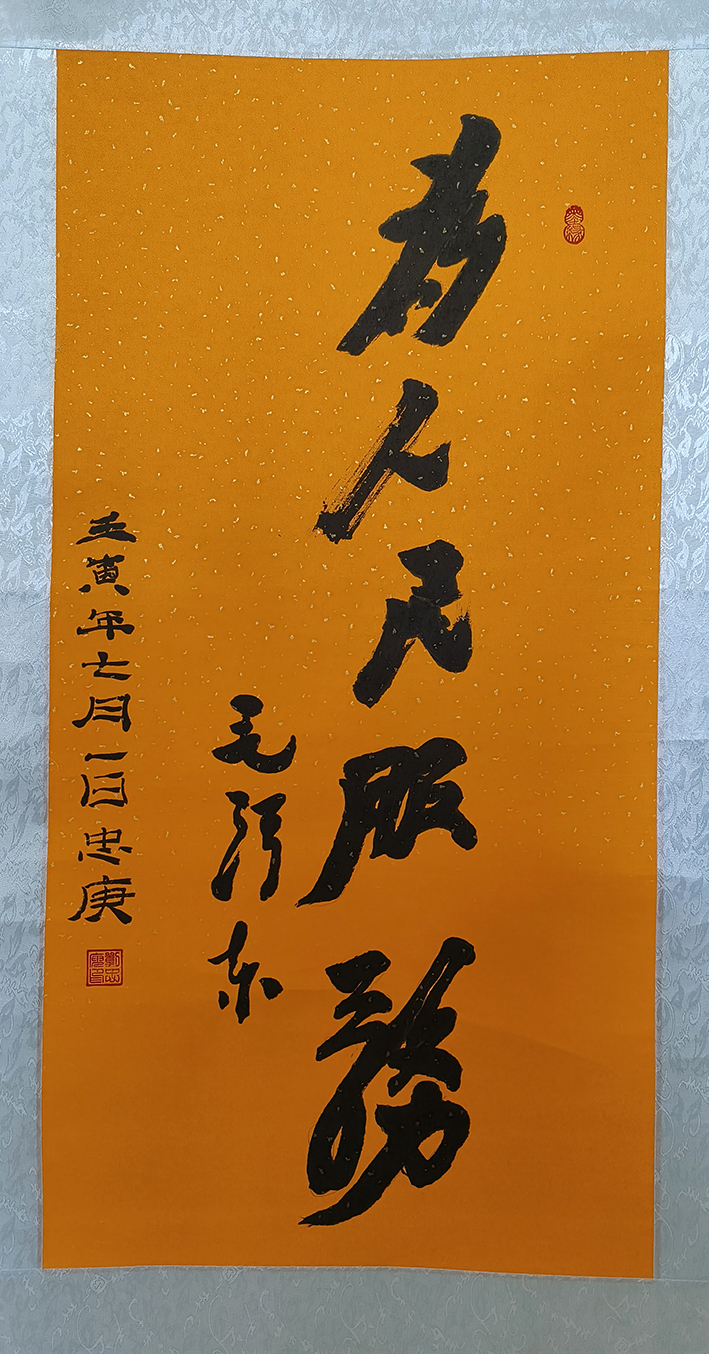 为人民服務
毛泽东
壬寅年七月一日忠庚